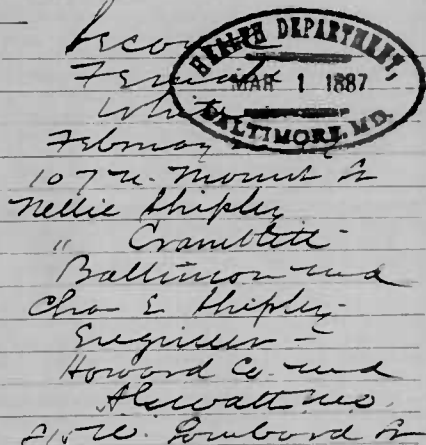 Second
Female
White
HEALTH DEPARTMENT,
MAR 1 1887
BALTIMORE, MD.
February
107 N. Mount St
Nellie Shipley
" Cramblitt
Baltimore Md
Chas E Shipley
Engineer
Howard Co. Md
M.D.
W. Lombard St